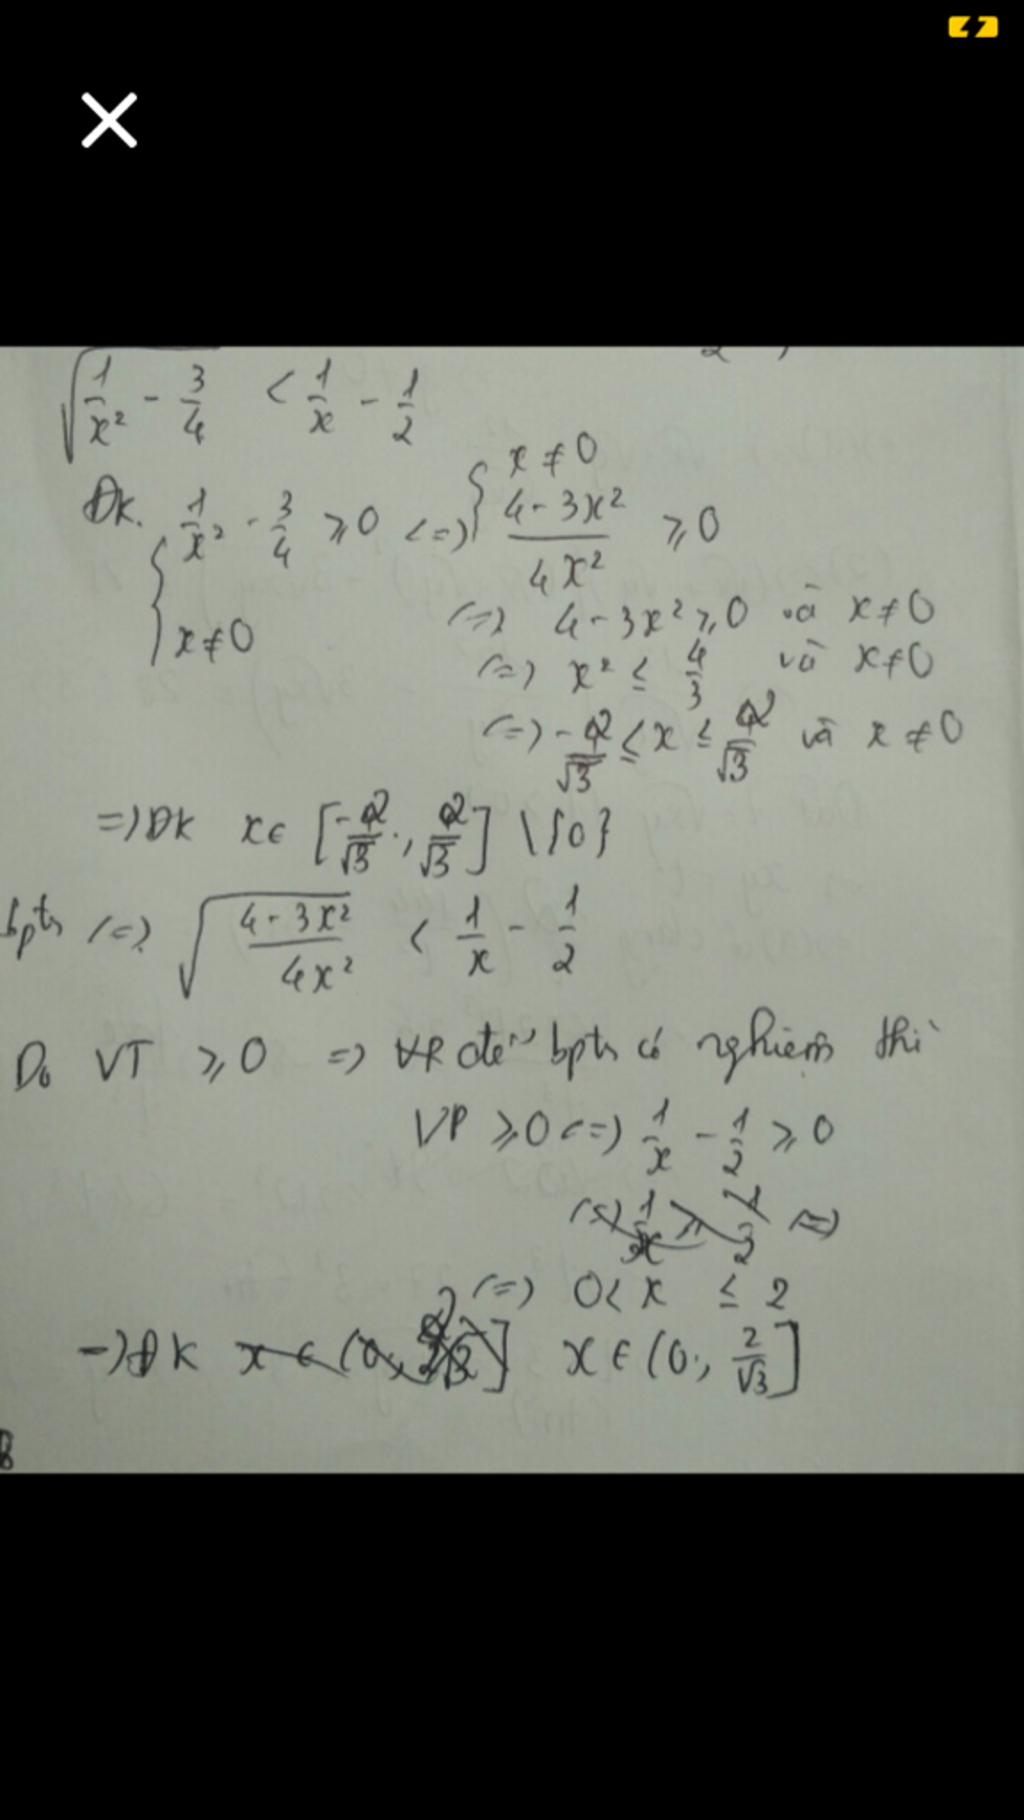 √(1/x² - 3/4) < 1/x - 1/2
Đk. { 1/x² - 3/4 ≥ 0 (=) { x ≠ 0
(4 - 3x²)/(4x²) ≥ 0
x ≠ 0
(=) 4 - 3x² ≥ 0 và x ≠ 0
(=) x² ≤ 4/3 và x ≠ 0
(=) -2/√3 ≤ x ≤ 2/√3 và x ≠ 0
=) Đk x ∈ [-2/√3 ; 2/√3] \ {0}
bpth (=) √((4 - 3x²)/(4x²)) < 1/x - 1/2
Do VT ≥ 0 =) để bpth có nghiệm thì
VP ≥ 0 (=) 1/x - 1/2 ≥ 0
(=) 0 < x ≤ 2
-) Đk x ∈ (0; 2/√3]